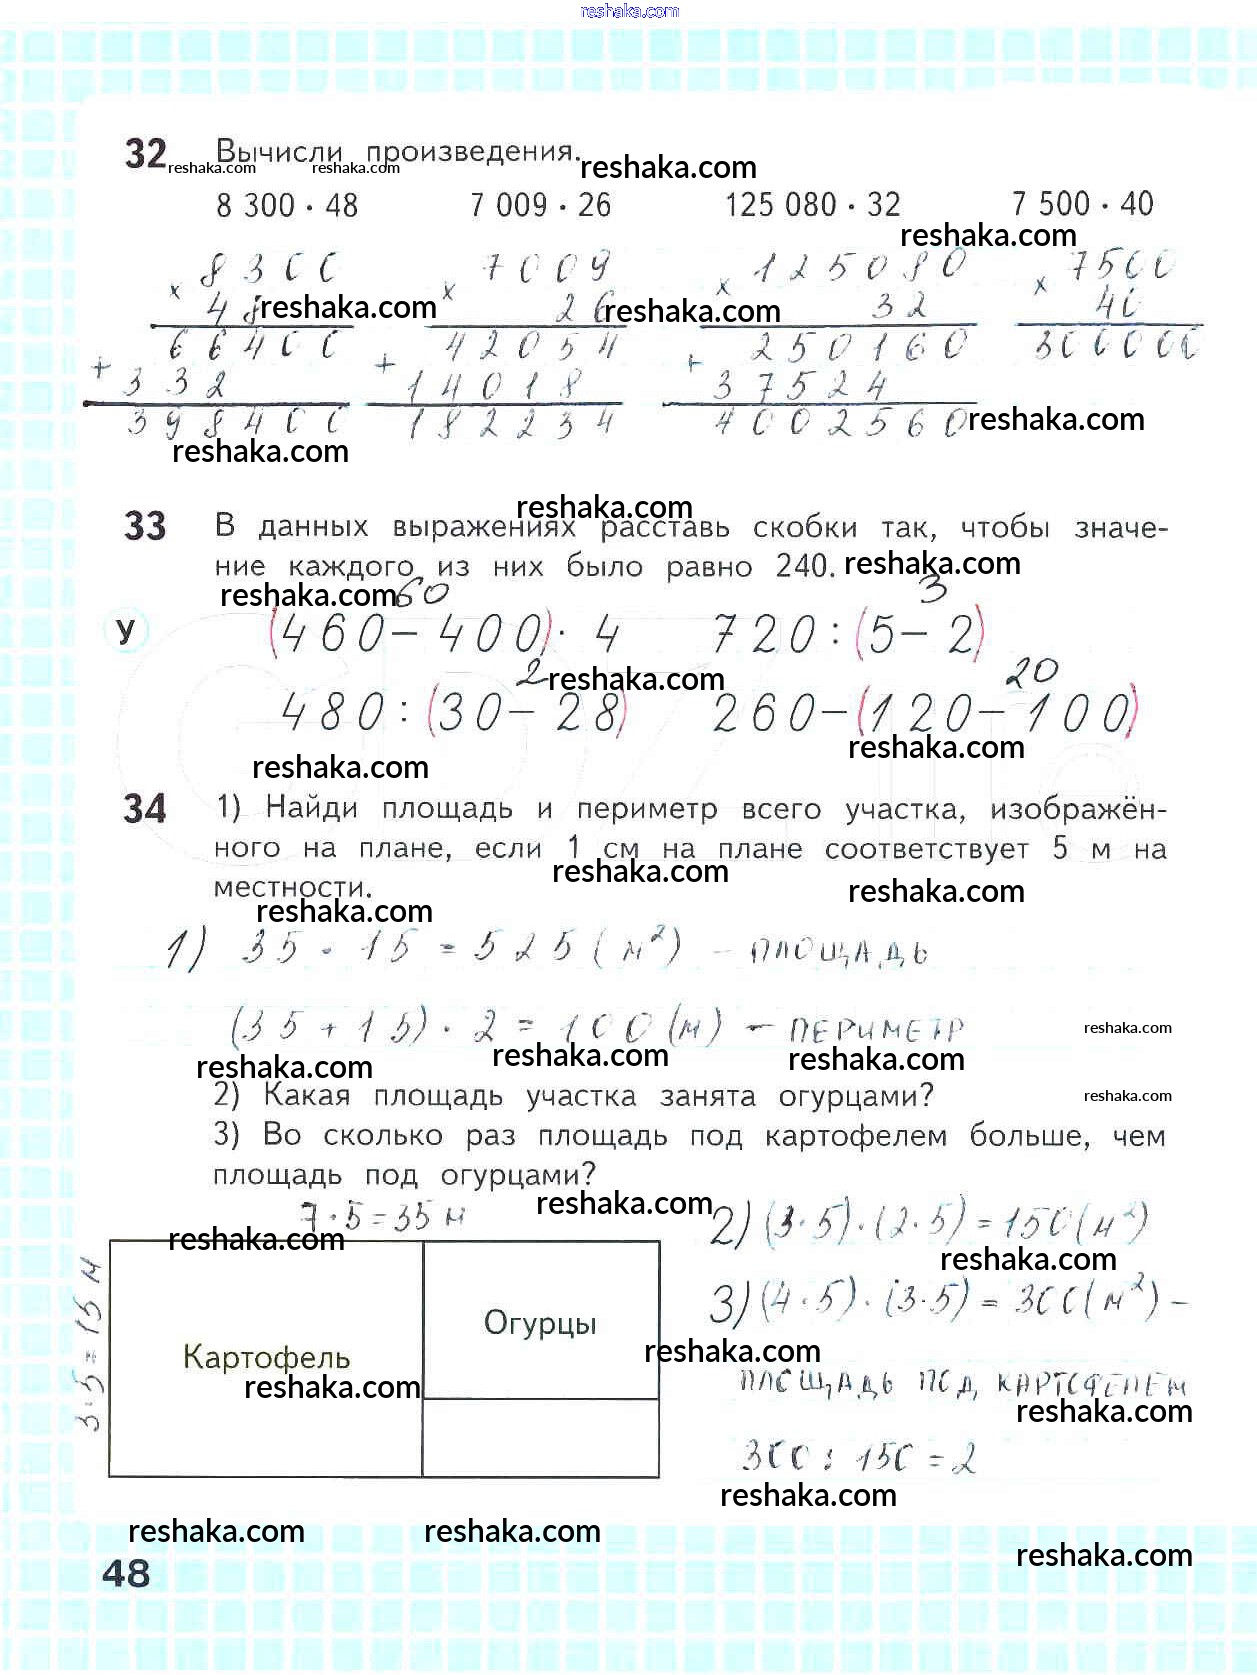 reshaka.com
32 Вычисли произведения.
reshaka.com reshaka.com reshaka.com
8 300 · 48 7 009 · 26 125 080 · 32 7 500 · 40
reshaka.com
8300 7009 125080 7500
× 48 × 26 × 32 × 40
reshaka.com reshaka.com
66400 42054 250160 300000
+ 332 + 14018 + 37524
398400 182234 4002560
reshaka.com
reshaka.com
reshaka.com
33 В данных выражениях расставь скобки так, чтобы значе-
ние каждого из них было равно 240. reshaka.com
reshaka.com 60 3
У (460 – 400) · 4 720 : (5 – 2)
2 reshaka.com 20
480 : (30 – 28) 260 – (120 – 100)
reshaka.com reshaka.com
34 1) Найди площадь и периметр всего участка, изображён-
ного на плане, если 1 см на плане соответствует 5 м на
reshaka.com reshaka.com
местности.
reshaka.com
1) 35 · 15 = 525 (м²) – площадь
(35 + 15) · 2 = 100 (м) – периметр reshaka.com
reshaka.com reshaka.com reshaka.com
2) Какая площадь участка занята огурцами? reshaka.com
3) Во сколько раз площадь под картофелем больше, чем
площадь под огурцами?
reshaka.com
7 · 5 = 35 м 2) (3 · 5) · (2 · 5) = 150 (м²)
reshaka.com reshaka.com
3 · 5 = 15 м
3) (4 · 5) · (3 · 5) = 300 (м²) –
Огурцы
Картофель reshaka.com
reshaka.com площадь под картофелем
reshaka.com
300 : 150 = 2
reshaka.com
reshaka.com reshaka.com
reshaka.com
48